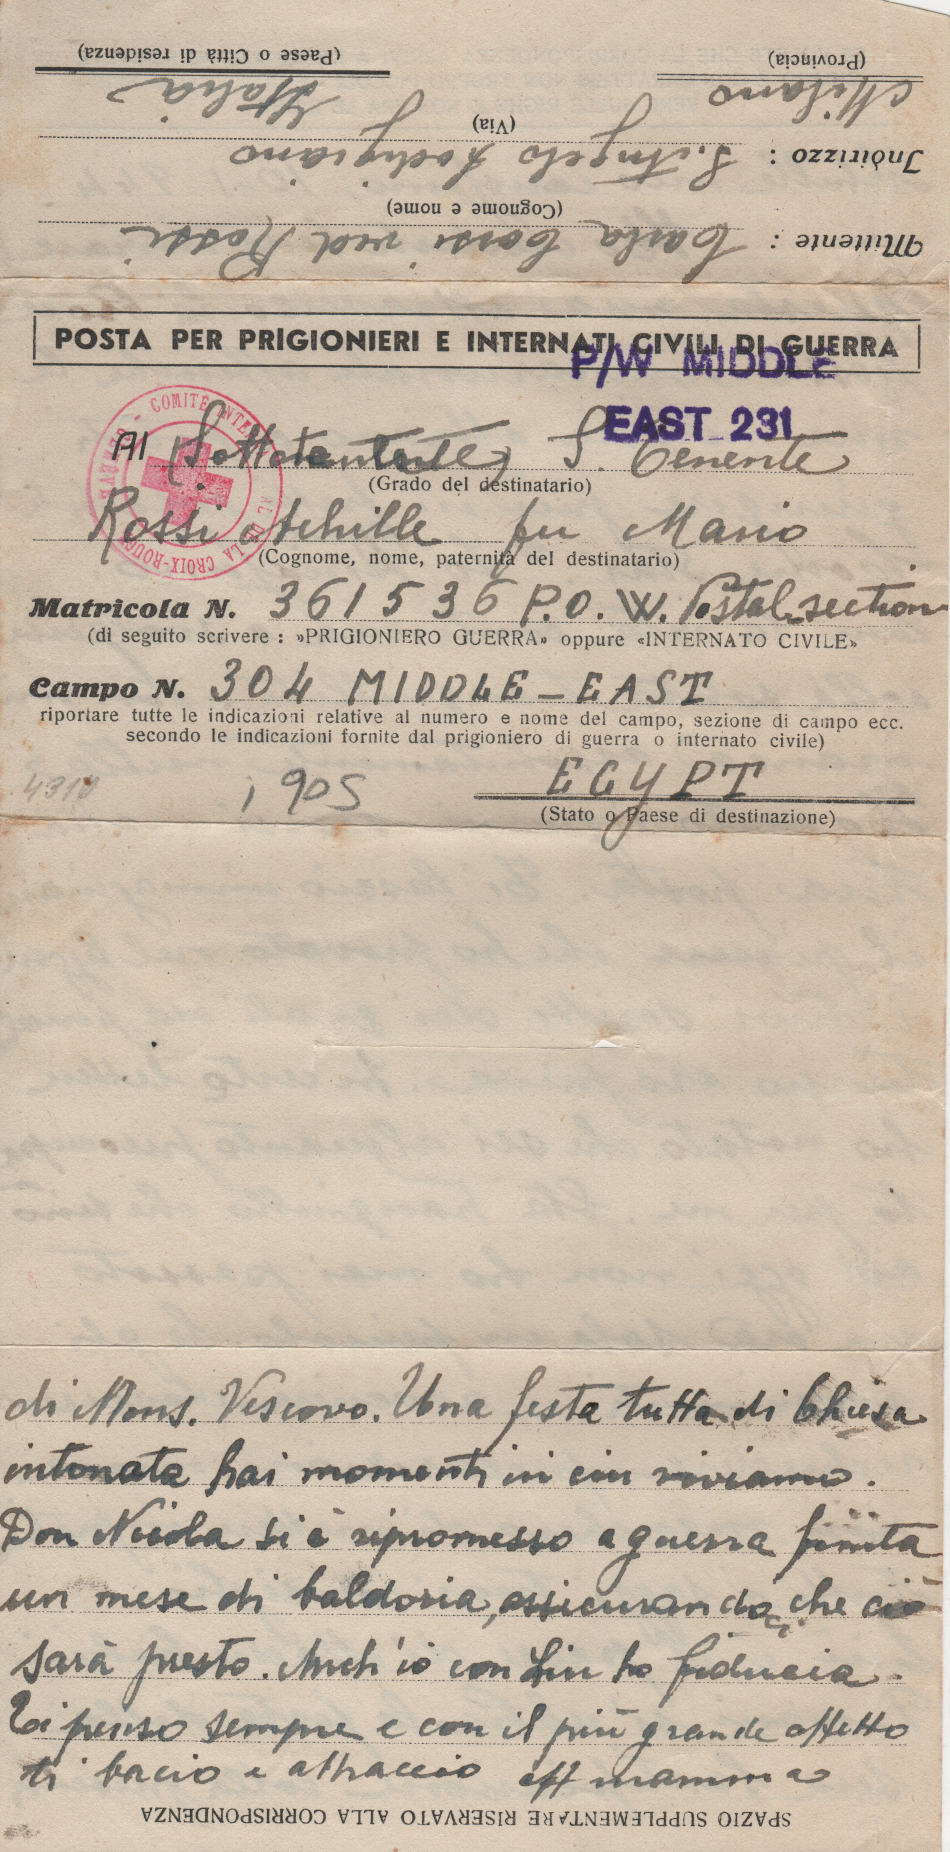 Mittente : Carla Corsi ved Rossi
(Cognome e nome)
Indirizzo : S. Angelo Lodigiano
(Via)
Milano Italia
(Provincia) (Paese o Città di residenza)
POSTA PER PRIGIONIERI E INTERNATI CIVILI DI GUERRA
P/W MIDDLE
EAST 231
COMITE INTERNATIONAL DE LA CROIX-ROUGE
Al (Sottotentente) S. Tenente
(Grado del destinatario)
Rossi Achille fu Mario
(Cognome, nome, paternità del destinatario)
Matricola N. 361536 P.O.W. Postal-section
(di seguito scrivere : »PRIGIONIERO GUERRA» oppure «INTERNATO CIVILE»
Campo N. 304 MIDDLE-EAST
riportare tutte le indicazioni relative al numero e nome del campo, sezione di campo ecc.
secondo le indicazioni fornite dal prigioniero di guerra o internato civile)
4310
EGYPT
(Stato o Paese di destinazione)
di Mons. Vescovo. Una festa tutta di Chiesa
intonata hai momenti in cui viviamo.
Don Nicola si è ripromesso a guerra finita
un mese di baldoria, assicurandoci che ciò
sarà presto. Anch'io con Lui ho fiducia.
Ti penso sempre e con il più grande affetto
ti bacio e abbraccio aff mamma
SPAZIO SUPPLEMENTARE RISERVATO ALLA CORRISPONDENZA